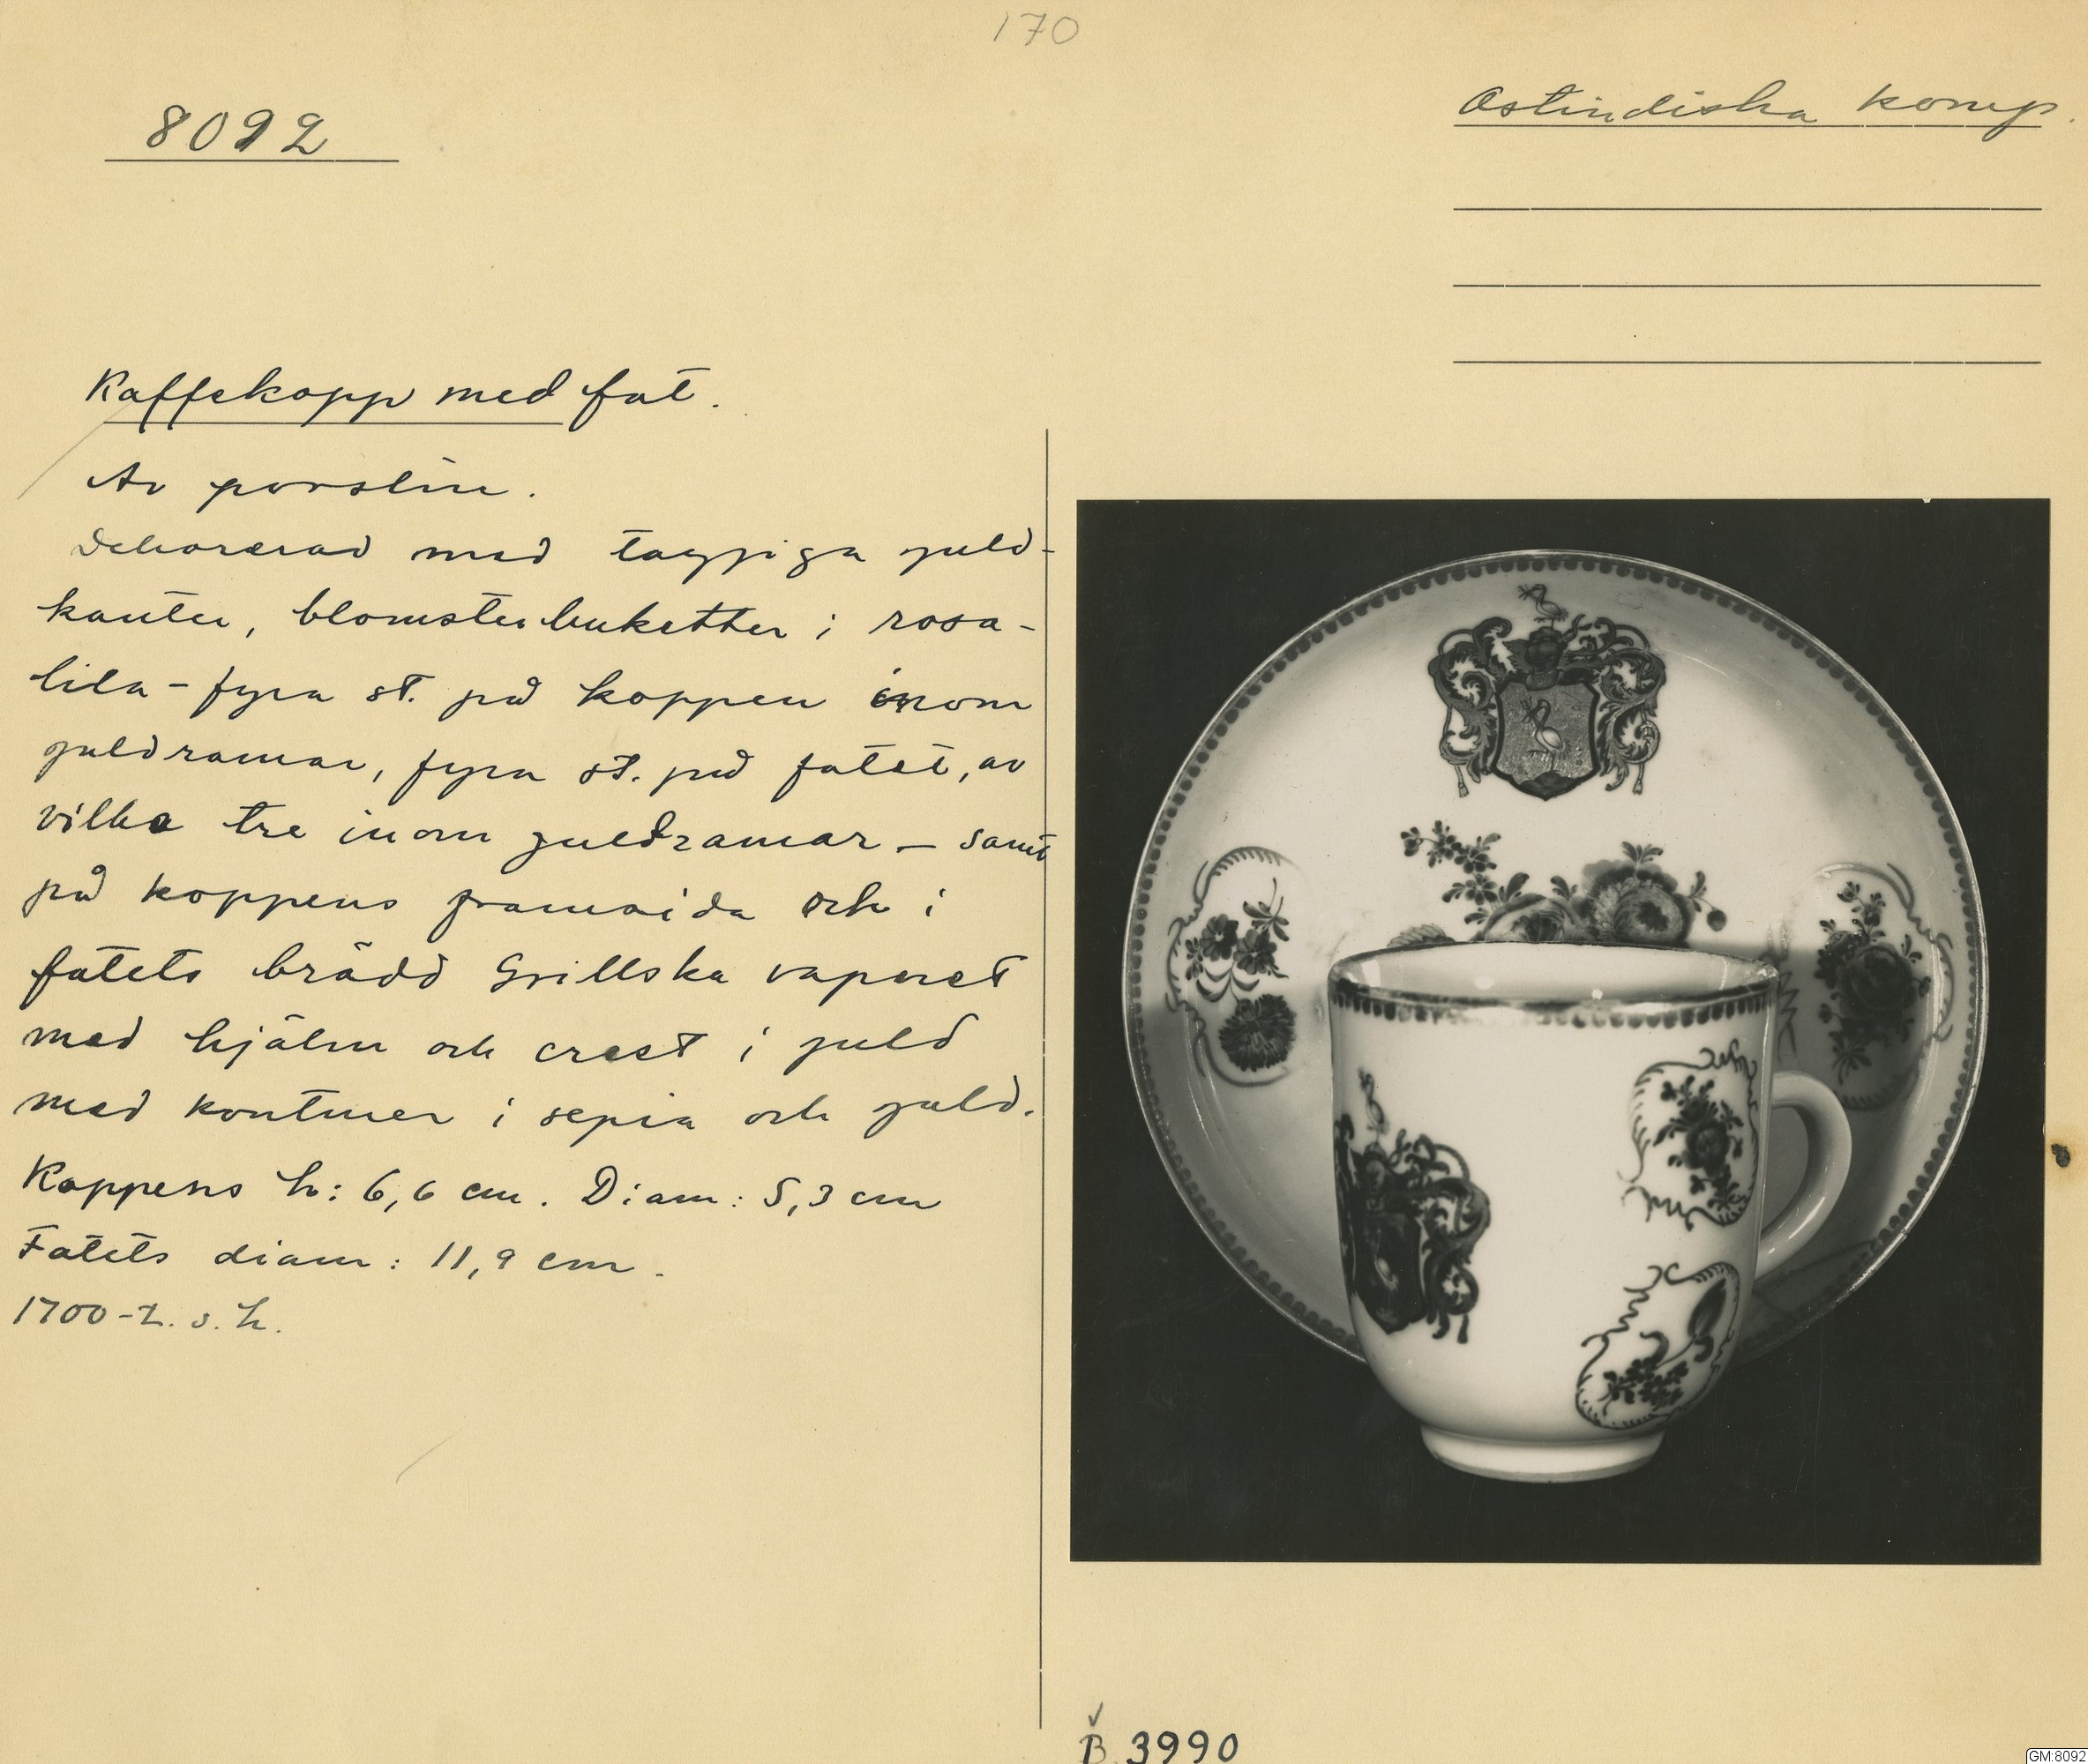 170
8092
Ostindiska komp.
Kaffekopp med fat.
Av porslin.
Dekorerad med taggiga guld-
kanter, blomsterbuketter i rosa-
lila - fyra st. på koppen inom
guldramar, fyra st. på fatet, av
vilka tre inom guldramar - samt
på koppens framsida och i
fatets brädd Grillska vapnet
med hjälm och crest i guld
med konturer i sepia och guld.
Koppens h: 6,6 cm. Diam: 5,3 cm
Fatets diam: 11,9 cm.
1700-t. s. h.
B 3990
GM:8092